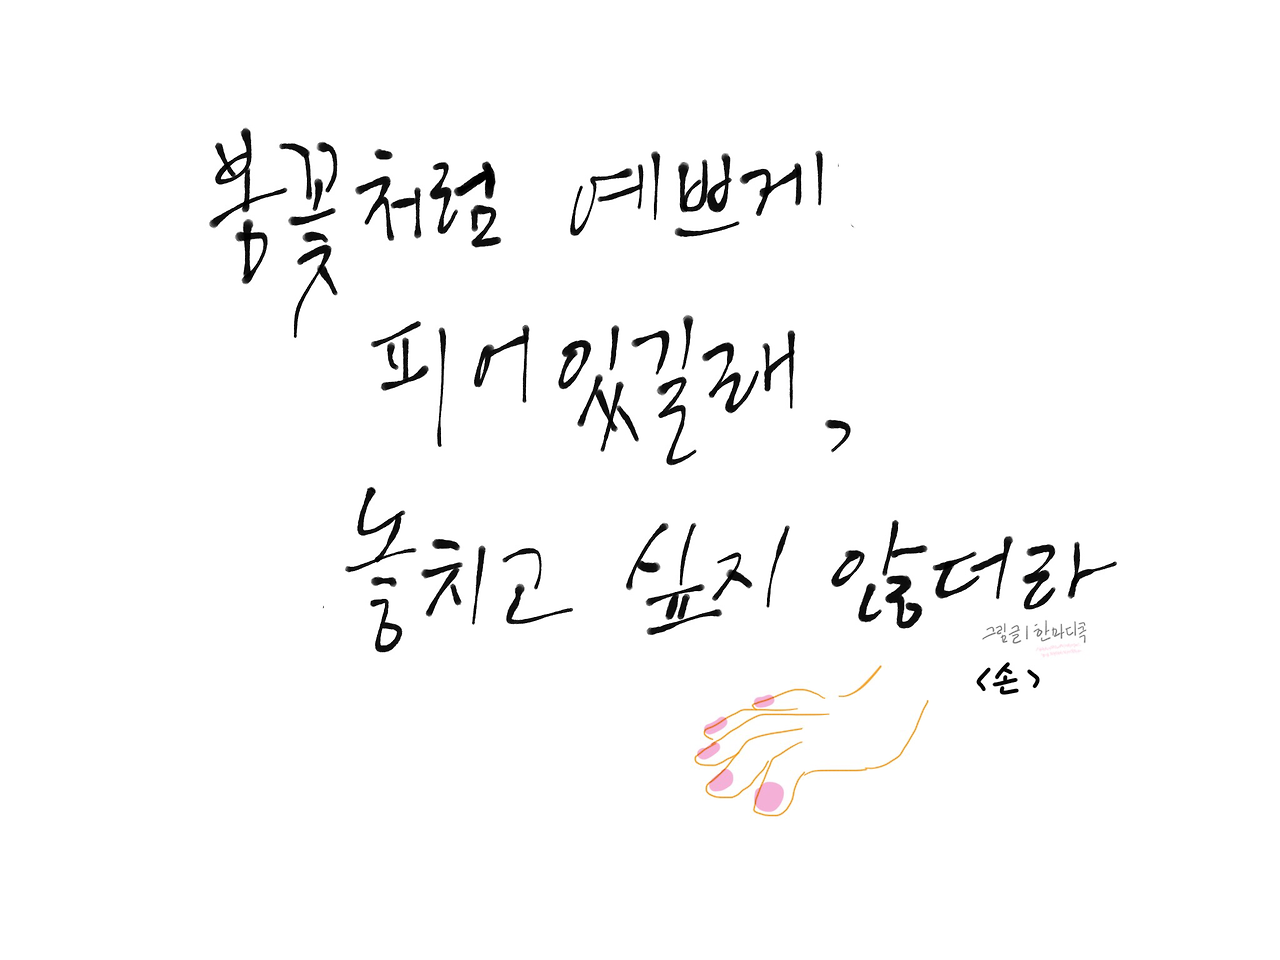 봄꽃처럼 예쁘게
피어있길래,
놓치고 싶지 않더라
그림글 | 한마디콕
<손>